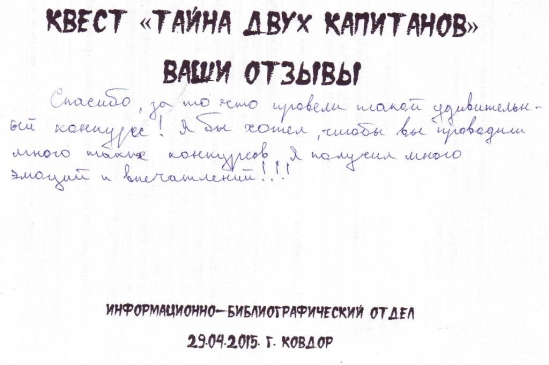 КВЕСТ «ТАЙНА ДВУХ КАПИТАНОВ»
ВАШИ ОТЗЫВЫ
Спасибо, за то что провели такой удивительн-
ый конкурс! Я бы хотел, чтобы вы проводили
много таких конкурсов. Я получил много
эмоций и впечатлений!!!
ИНФОРМАЦИОННО-БИБЛИОГРАФИЧЕСКИЙ ОТДЕЛ
29.04.2015. Г. КОВДОР